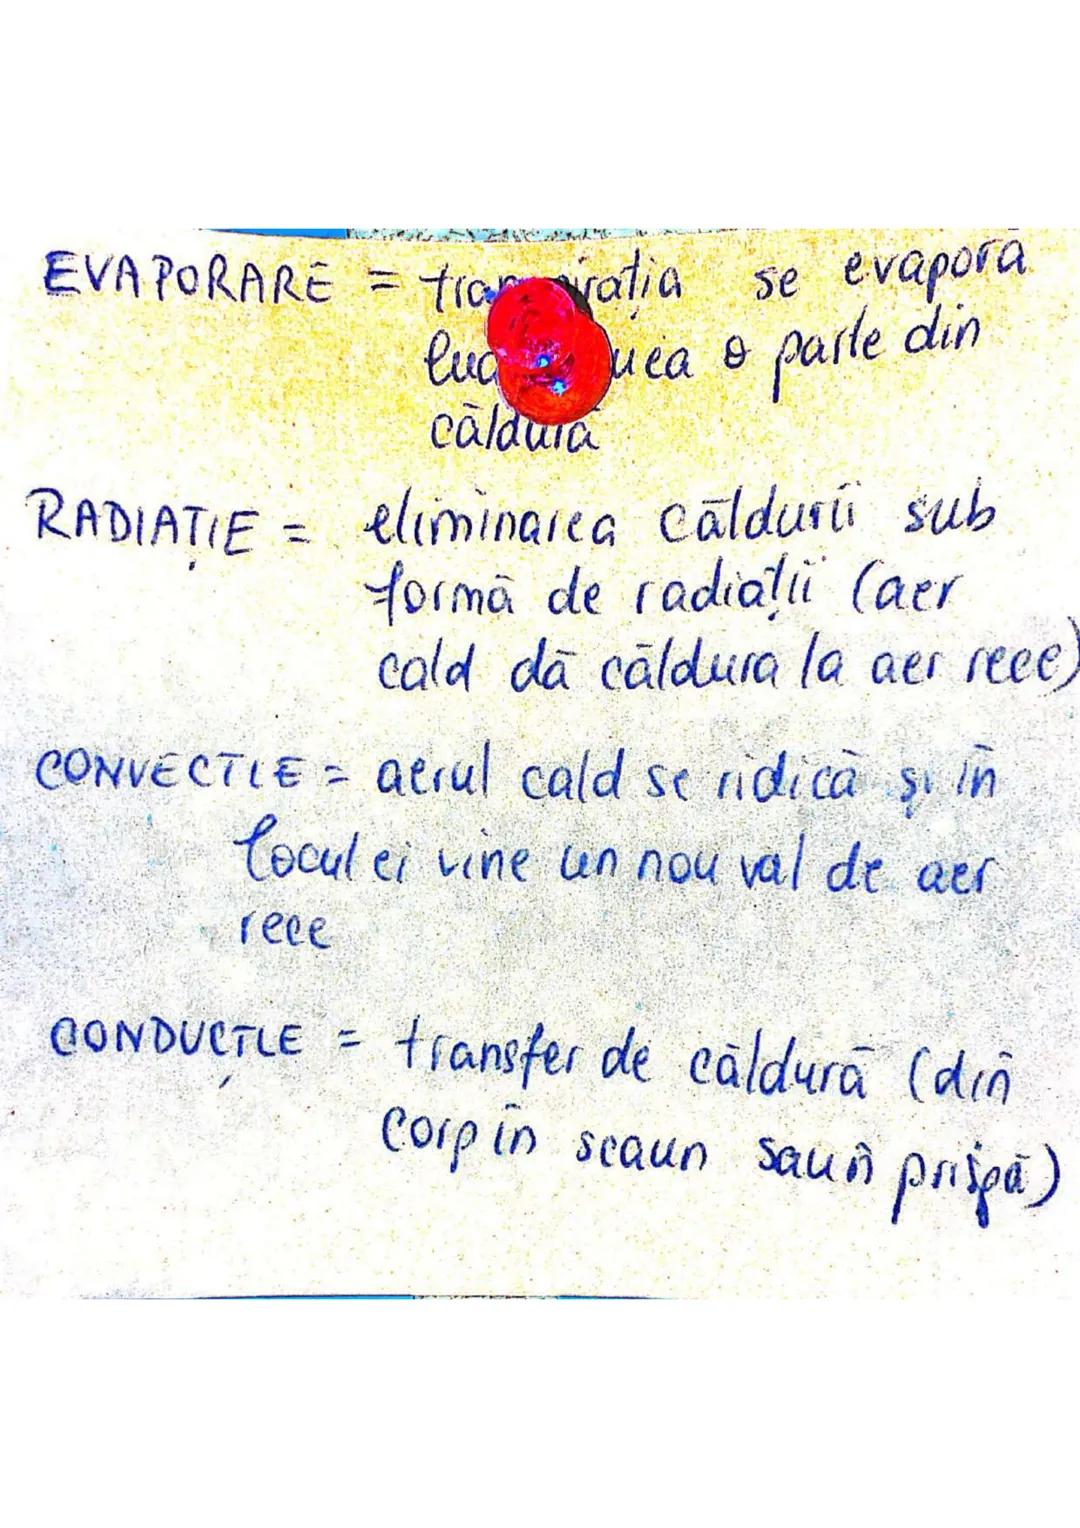 EVAPORARE = transpirația se evapora
o parte din
căldură
RADIAȚIE = eliminarea căldurii sub
formă de radiații (aer
cald dă căldura la aer rece)
CONVECTIE = aerul cald se ridică și în
locul ei vine un nou val de aer
rece
CONDUCȚIE = transfer de căldură (din
corp în scaun sau în prispă)